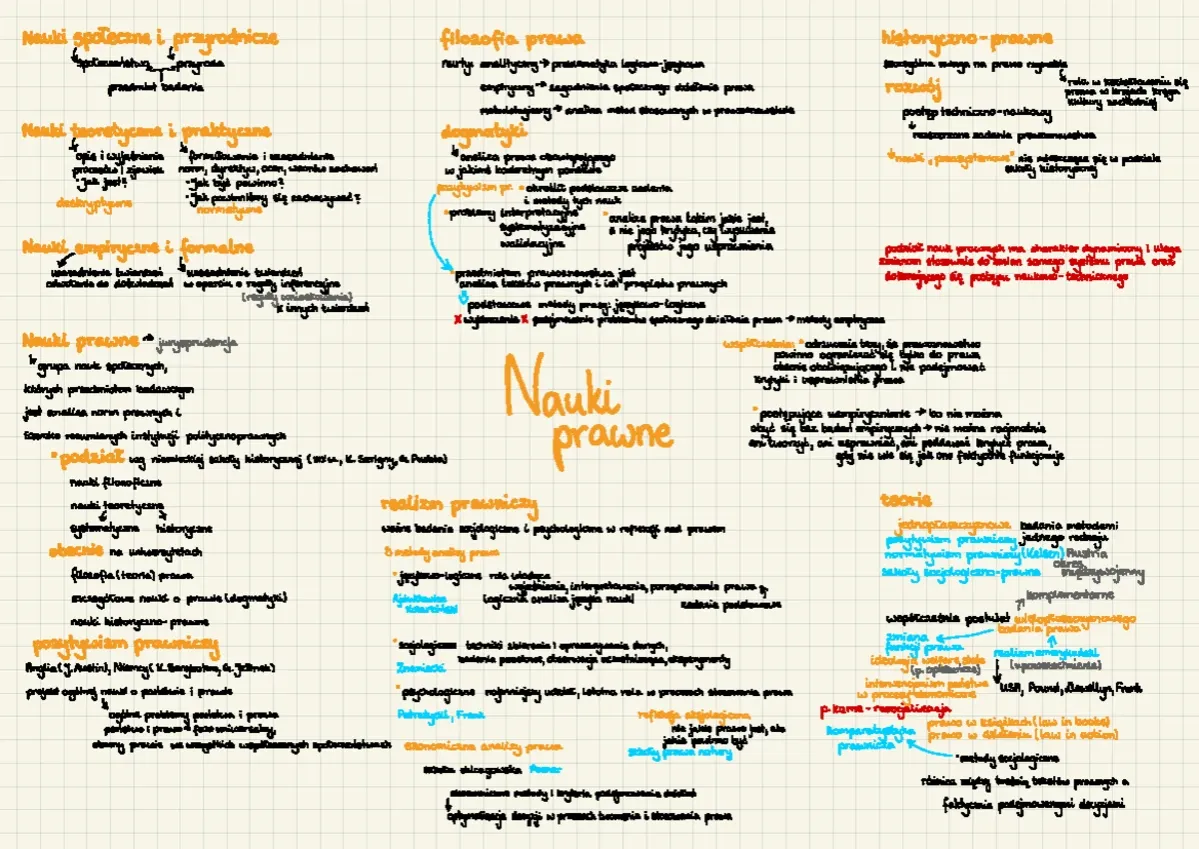 Nauki społeczne i przyrodnicze
społeczeństwo przyroda
przedmiot badania
Nauki teoretyczne i praktyczne
opis i wyjaśnianie
procesów i zjawisk
"Jak jest?
deskryptywne
formułowanie i uzasadnianie
norm, dyrektyw, ocen, wzorów zachowań
"Jak być powinno?
"Jak powinniśmy się zachowywać?
normatywne
Nauki empiryczne i formalne
uzasadnienie twierdzeń
odwołanie do doświadczeń
uzasadnienie twierdzeń
w oparciu o reguły inferencyjne
(reguły wnioskowania)
z innych twierdzeń
Nauki prawne → jurysprudencja
grupa nauk społecznych,
których przedmiotem badawczym
jest analiza norm prawnych i
szeroko rozumianych instytucji politycznoprawnych
podział wg niemieckiej szkoły historycznej
nauki filozoficzne
nauki teoretyczne
systematyczne historyczne
obecnie na uniwersytetach
filozofia (teoria) prawa
szczegółowe nauki o prawie (dogmatyki)
nauki historyczno-prawne
pozytywizm prawniczy
Anglia (J. Austin), Niemcy
projekt ogólnej nauki o państwie i prawie
ogólne problemy państwa i prawa
państwo i prawo
obecny prawie we wszystkich współczesnych społeczeństwach
filozofia prawa
nurty: analityczny → problematyka logiczno-językowa
empiryczny → zagadnienia społecznego działania prawa
metodologiczny → analiza metod stosowanych w prawoznawstwie
dogmatyki
analiza prawa obowiązującego
w jakimś konkretnym porządku
pozytywizm pr. określił podstawowe zadania
i metody tych nauk
problemy interpretacyjne
systematyzacyjne
walidacyjne
analiza prawa takim jakie jest,
a nie jego krytyka, czy wysuwanie
projektów jego usprawnienia
przedmiotem prawoznawstwa jest
analiza tekstów prawnych i ich przepisów prawnych
podstawowe metody pracy: językowo-logiczne
X wykluczenie X podejmowanie problemów społecznego działania prawa → metody empiryczne
Nauki
prawne
historyczno-prawne
szczególna uwaga na prawo rzymskie
rola w kształtowaniu się
prawa w krajach kręgu
kultury zachodniej
rozwój
postęp techniczno-naukowy
rozszerzone zadania prawoznawstwa
nauki "pozasystemowe" nie mieszczące się w podziale
szkoły historycznej
podział nauk prawnych ma charakter dynamiczny i ulega
zmianom stosownie do zmian samego systemu prawa oraz
dokonującego się postępu naukowo-technicznego
współcześnie: odrzucenie tezy, że prawoznawstwo
powinno ograniczać się tylko do prawa
obecnie obowiązującego i nie podejmować
krytyki i usprawnienia prawa
postępujące uempirycznienie → bo nie można
obyć się bez badań empirycznych → nie można racjonalnie
ani tworzyć, ani usprawniać, ani poddawać krytyce prawa,
gdy nie wie się jak ono faktycznie funkcjonuje
realizm prawniczy
ważne badania socjologiczne i psychologiczne w refleksji nad prawem
3 metody analizy prawa
językowo-logiczne rola wiodąca
wyjaśnianie, interpretowanie, porządkowanie prawa
logiczna analiza języka nauki
zadania podstawowe
socjologiczne techniki zbierania i opracowywania danych,
badania terenowe, obserwacja uczestnicząca, eksperymenty
Znaniecki
psychologiczne istotna rola w procesach stosowania prawa
Petrażycki, Frank
refleksja aksjologiczna
nie jakie prawo jest, ale
jakie powinno być
szkoły prawa natury
ekonomiczna analiza prawa
szkoła chicagowska Posner
ekonomiczne metody i kryteria podejmowania działań
optymalizacja decyzji w procesach tworzenia i stosowania prawa
teorie
jednopłaszczyznowe badania metodami
jednego rodzaju
pozytywizm prawniczy
normatywizm prawniczy (Kelsen) Austria
okres
międzywojenny
szkoły socjologiczno-prawne
komplementarne
współcześnie postulat wielopłaszczyznowego
badania prawa
zmiana
funkcji prawa
ideologia welfare state
(p. opiekuńcze)
interwencjonizm państwa
w procesy ekonomiczne
realizm amerykański
(upowszechnienie)
USA, Pound, Llewellyn, Frank
p. karne - resocjalizacja
komparatystyka
prawnicza
prawo w książkach (law in books)
prawo w działaniu (law in action)
metody socjologiczne
różnica między treścią tekstów prawnych a
faktycznie podejmowanymi decyzjami